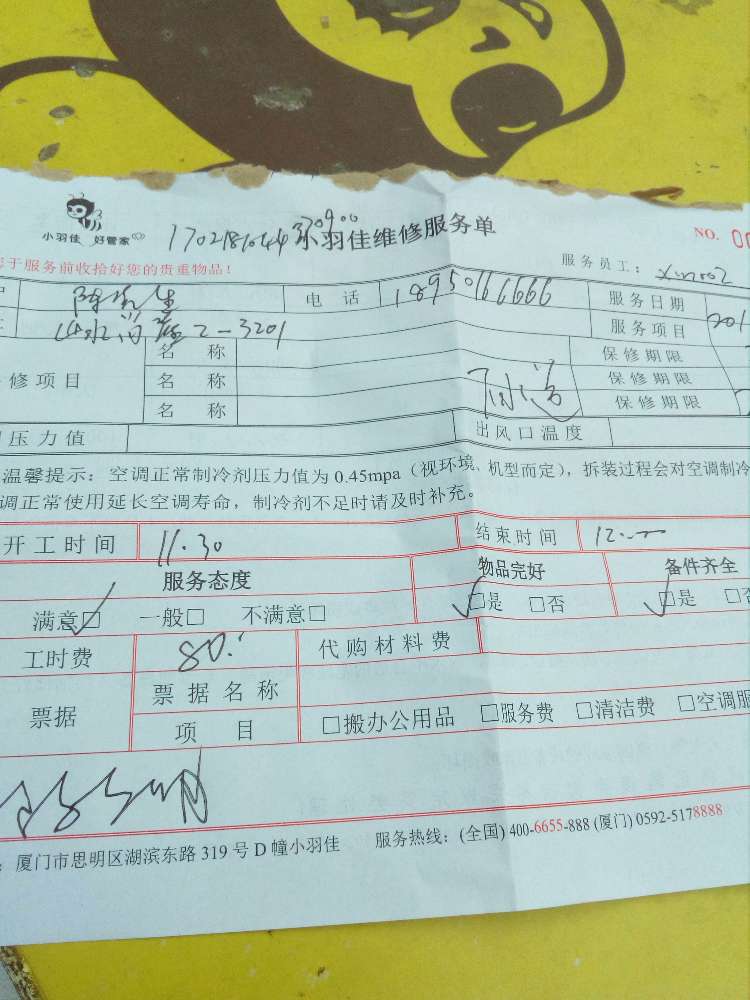 小羽佳 好管家
小羽佳维修服务单
NO. 00
于服务前收拾好您的贵重物品!
服务员工:
电 话 18950166666 服务日期 201
2-3201 服务项目
名 称 保修期限
修项目 名 称 保修期限
名 称 保修期限
压力值 出风口温度
温馨提示:空调正常制冷剂压力值为 0.45mpa(视环境、机型而定),拆装过程会对空调制冷
调正常使用延长空调寿命,制冷剂不足时请及时补充。
开工时间 11.30 结束时间 12.
服务态度 物品完好 备件齐全
满意□ 一般□ 不满意□ □是 □否 □是 □否
工时费 80. 代购材料费
票据 票据名称
项 目 □搬办公用品 □服务费 □清洁费 □空调服
:厦门市思明区湖滨东路 319 号 D 幢小羽佳 服务热线:(全国) 400-6655-888 (厦门) 0592-5178888